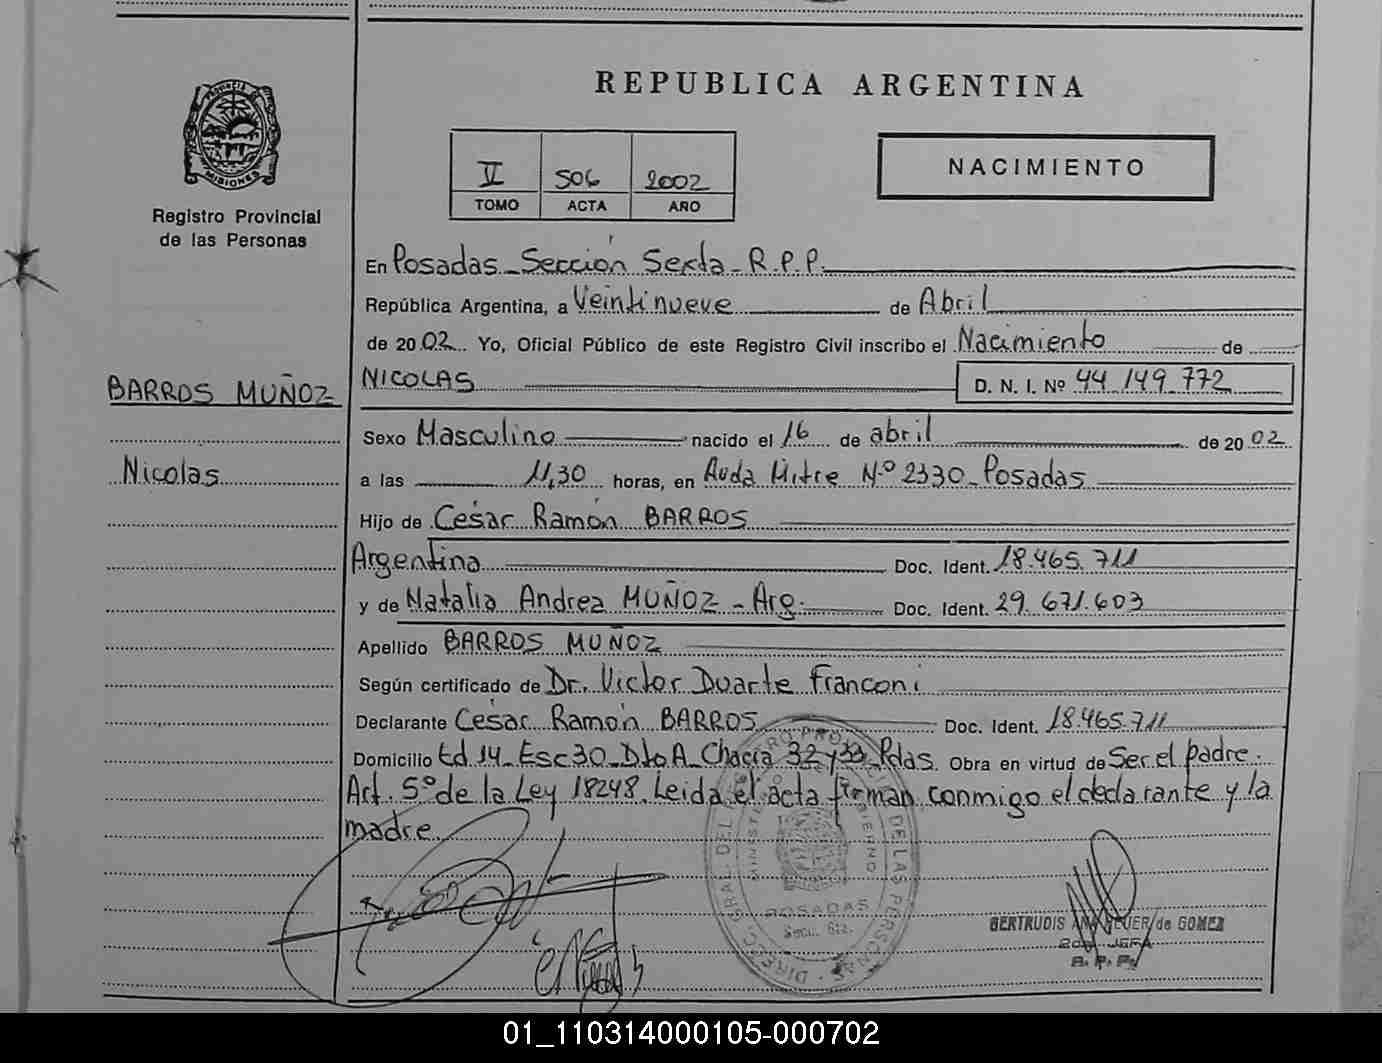 REPUBLICA ARGENTINA
PROVINCIA DE MISIONES
Registro Provincial
de las Personas
II 506 2002
TOMO ACTA AÑO
NACIMIENTO
En Posadas - Sección Sexta - R.P.P.
República Argentina, a Veintinueve de Abril
de 2002 Yo, Oficial Público de este Registro Civil inscribo el Nacimiento de
BARROS MUÑOZ
NICOLAS D. N. I. Nº 44 149 772
Sexo Masculino nacido el 16 de abril de 2002
Nicolas
a las 11,30 horas, en Avda Mitre Nº 2330 - Posadas
Hijo de César Ramón BARROS
Argentina Doc. Ident. 18.465.711
y de Natalia Andrea MUÑOZ - Arg. Doc. Ident. 29.671.603
Apellido BARROS MUÑOZ
Según certificado de Dr. Victor Duarte Franconi
Declarante César Ramón BARROS Doc. Ident. 18.465.711
Domicilio Ed 14 - Esc 30 - Dto A - Chacra 32 y 33 - Pdas. Obra en virtud de Ser el padre.
Art. 5º de la Ley 18248. Leida el acta firman conmigo el declarante y la
madre
DIREC. GRAL. DEL REGISTRO PROVINCIAL DE LAS PERSONAS
MINISTERIO DE GOBIERNO
POSADAS
Secc. 6ta.
GERTRUDIS ANA de GOMEZ
2da JEFA
R. P. P.
01_110314000105-000702